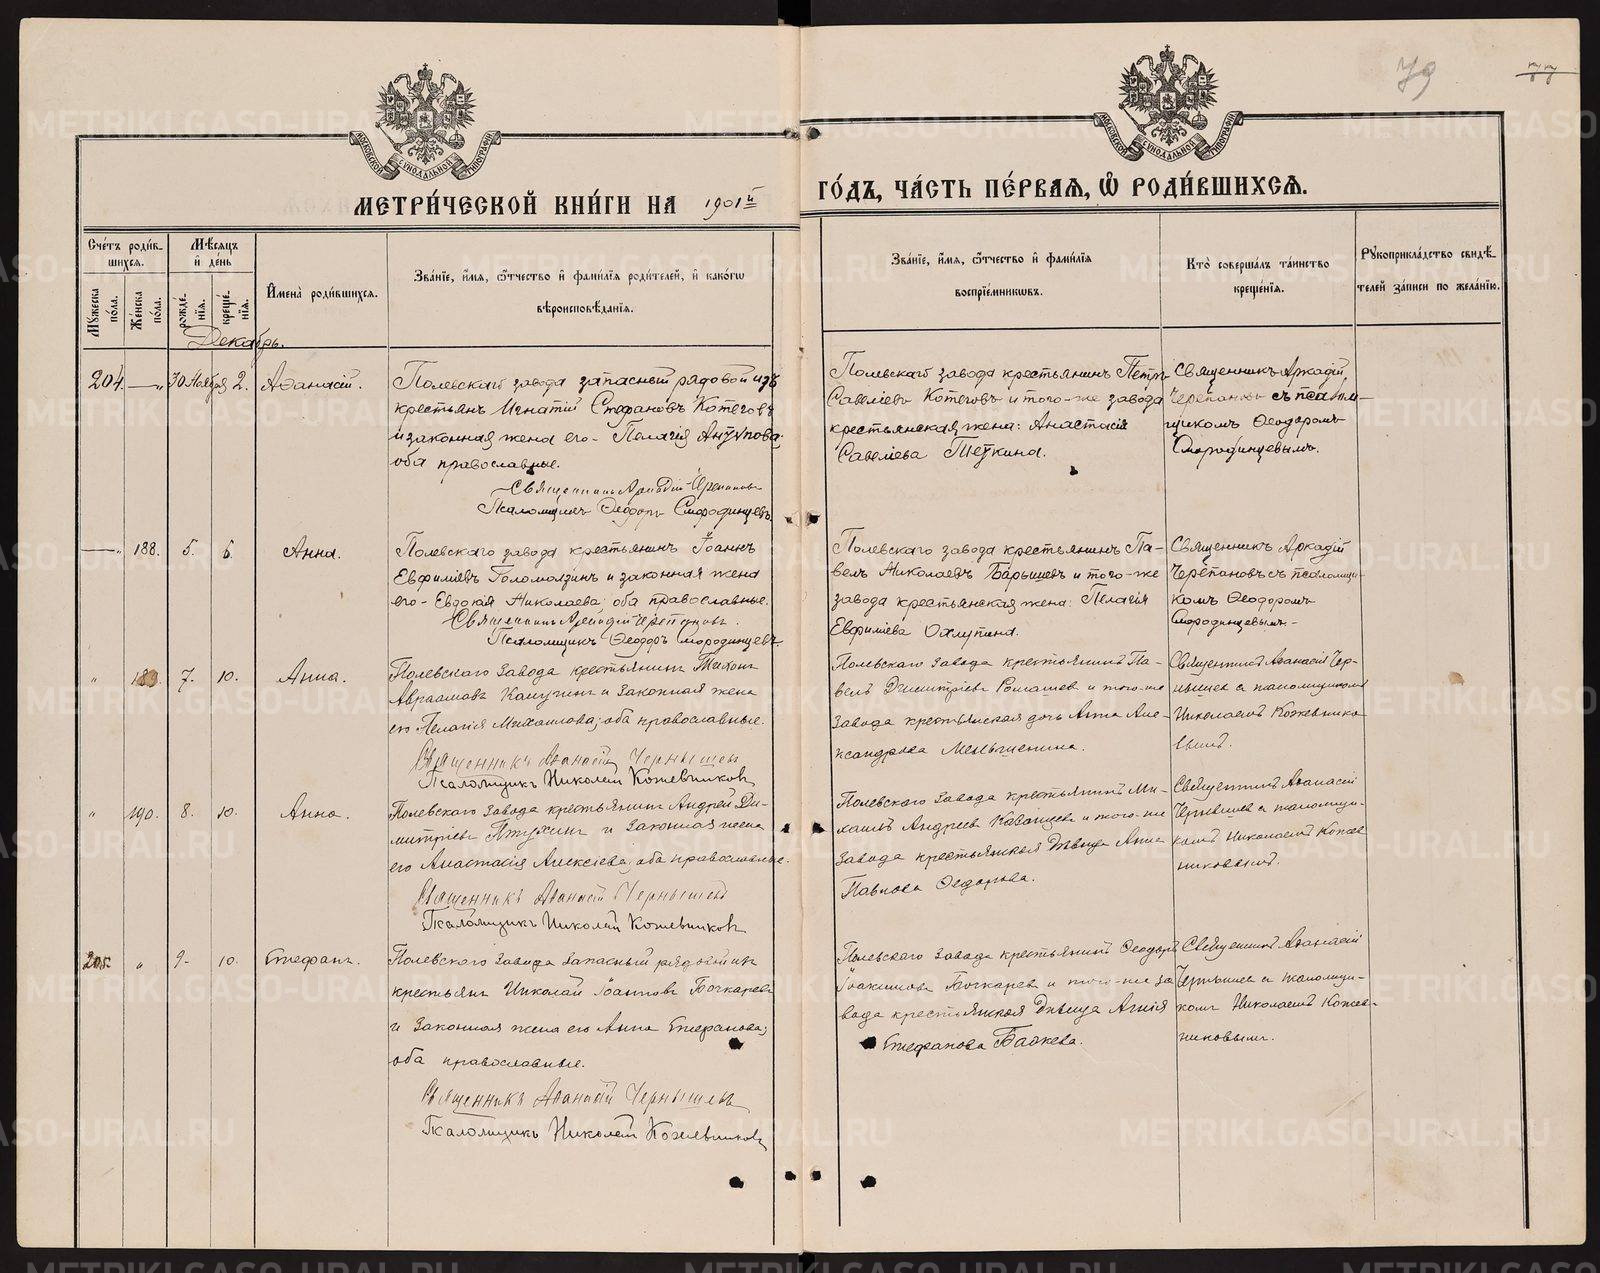 79
МЕТРИ́ЧЕСКОЙ КНИ́ГИ НА 1901й
ГО́ДЪ, ЧА́СТЬ ПЕ́РВАЯ, Ѽ РОДИ́ВШИХСЯ.
МОСКОВСКОЙ СѴНОДАЛЬНОЙ ТИПОГРАФІИ
МОСКОВСКОЙ СѴНОДАЛЬНОЙ ТИПОГРАФІИ
Счетъ роди́вшихся.
Мужеска по́ла.
Же́нска по́ла.
Мѣсяцъ и де́нь
рожде́нія.
креще́нія.
Имена̀ роди́вшихся.
Зва́ніе, и́мя, ѻ́тчество и фами́лія роди́телей, и како́гѡ
вѣроисповѣ́данія.
Зва́ніе, и́мя, ѻ́тчество и фами́лія
воспріе́мниковъ.
Кто̀ соверша́лъ та́инство
креще́нія.
Рукоприкла́дство свидѣ́-
телей за́писи по жела́нію.
Декабрь.
204. —„ 30 Ноября 2. Аѳанасій.
Полевскаго завода запасный рядовой изъ
крестьянъ Игнатій Стефановъ Котеговъ
и законная жена его - Пелагія
оба православные.
Священникъ Аркадій Черепановъ
Псаломщикъ Ѳеодоръ Смородинцевъ
Полевскаго завода крестьянинъ Петръ
Савеліевъ Котеговъ и того-же завода
крестьянская жена: Анастасія
Савеліева
Священникъ Аркадій
Черепановъ съ псалом-
щикомъ Ѳеодоромъ
Смородинцевымъ.
—„ 188. 5. 6. Анна.
Полевскаго завода крестьянинъ Іоаннъ
Евфиміевъ Голомолзинъ и законная жена
его - Евдокія Николаева; оба православные.
Священникъ Аркадій Черепановъ.
Псаломщикъ Ѳеодоръ Смородинцевъ
Полевскаго завода крестьянинъ Па-
велъ Николаевъ Барышевъ и того-же
завода крестьянская жена: Пелагія
Евфиміева
Священникъ Аркадій
Черепановъ съ псаломщи-
комъ Ѳеодоромъ
Смородинцевымъ.-
„ 189. 7. 10. Анна.
Полевского завода крестьянинъ Тихонъ
Авраамовъ и законная жена
его Пелагія Михаилова; оба православные.
Священникъ Аѳанасій Чернышевъ
Псаломщикъ Николай Кожевниковъ
Полевского завода крестьянинъ Па-
велъ Димитріевъ и того-же
завода крестьянская дочь Анна Але-
ксандрова Меньшенина.
Священникъ Аѳанасій Чер-
нышевъ с псаломщикомъ
Николаемъ Кожевнико-
вымъ.
„ 190. 8. 10. Анна.
Полевского завода крестьянинъ Андрей Ди-
митріевъ Птухинъ и законная жена
его Анастасія Алексіева; оба православные.
Священникъ Аѳанасій Чернышевъ
Псаломщикъ Николай Кожевниковъ
Полевского завода крестьянинъ Ми-
хаилъ Андреевъ и того-же
завода крестьянская дѣвица Анна
Павлова Ѳедорова.
Священникъ Аѳанасій
Чернышевъ с псаломщи-
комъ Николаемъ Кожев-
никовымъ.
205. „ 9. 10. Стефанъ.
Полевского завода запасный рядовой изъ
крестьянъ Николай Іоанновъ Бочкаревъ
и законная жена его Анна Стефанова;
оба православные.
Священникъ Аѳанасій Чернышевъ
Псаломщикъ Николай Кожевниковъ
Полевского завода крестьянинъ Ѳеодоръ
Іоакимовъ Бочкаревъ и того-же за-
вода крестьянская дѣвица
Стефанова
Священникъ Аѳанасій
Чернышевъ с псаломщи-
комъ Николаемъ Кожев-
никовымъ.
METRIKI.GASO-URAL.RU